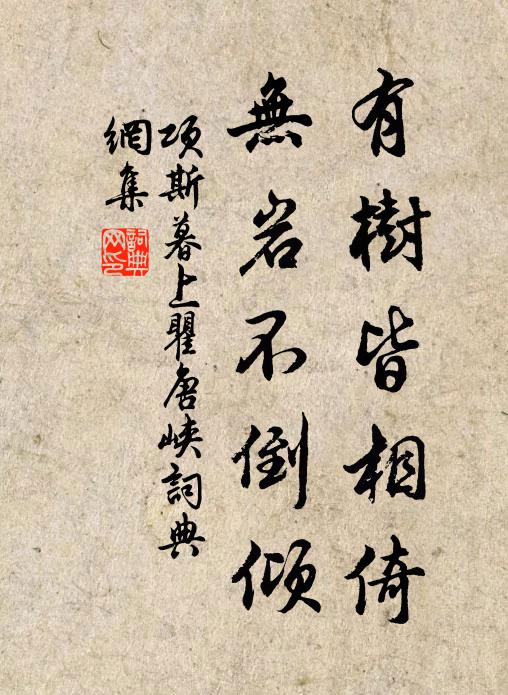 有樹皆相倚
無岩不倒傾
項斯暮上瞿唐峽詞典
網集
詞典網印